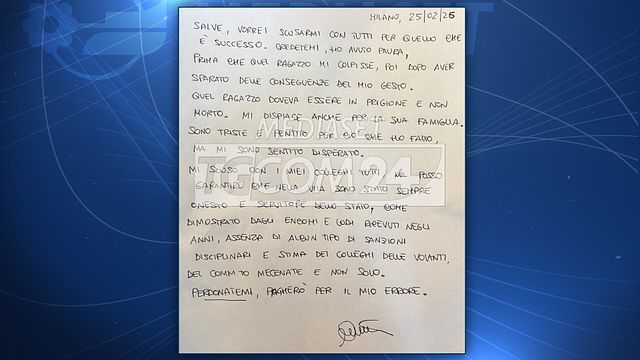 MILANO, 25/02/26
SALVE, VORREI SCUSARMI CON TUTTI PER QUELLO CHE
È SUCCESSO. CREDETEMI, HO AVUTO PAURA,
PRIMA CHE QUEL RAGAZZO MI COLPISSE, POI DOPO AVER
SPARATO DELLE CONSEGUENZE DEL MIO GESTO.
QUEL RAGAZZO DOVEVA ESSERE IN PRIGIONE E NON
MORTO. MI DISPIACE ANCHE PER LA SUA FAMIGLIA.
SONO TRISTE E PENTITO PER CIÒ CHE HO FATTO,
MA MI SONO SENTITO DISPERATO.
MI SCUSO CON I MIEI COLLEGHI TUTTI MA POSSO
GARANTIRE CHE NELLA VITA SONO STATO SEMPRE
ONESTO E SERVITORE DELLO STATO, COME
DIMOSTRATO DAGLI ENCOMI E LODI RICEVUTI NEGLI
ANNI, ASSENZA DI ALCUN TIPO DI SANZIONI
DISCIPLINARI E STIMA DEI COLLEGHI DELLE VOLANTI,
DEL COMM.TO MECENATE E NON SOLO.
PERDONATEMI, PAGHERÒ PER IL MIO ERRORE.
MEDIASET
TGCOM24